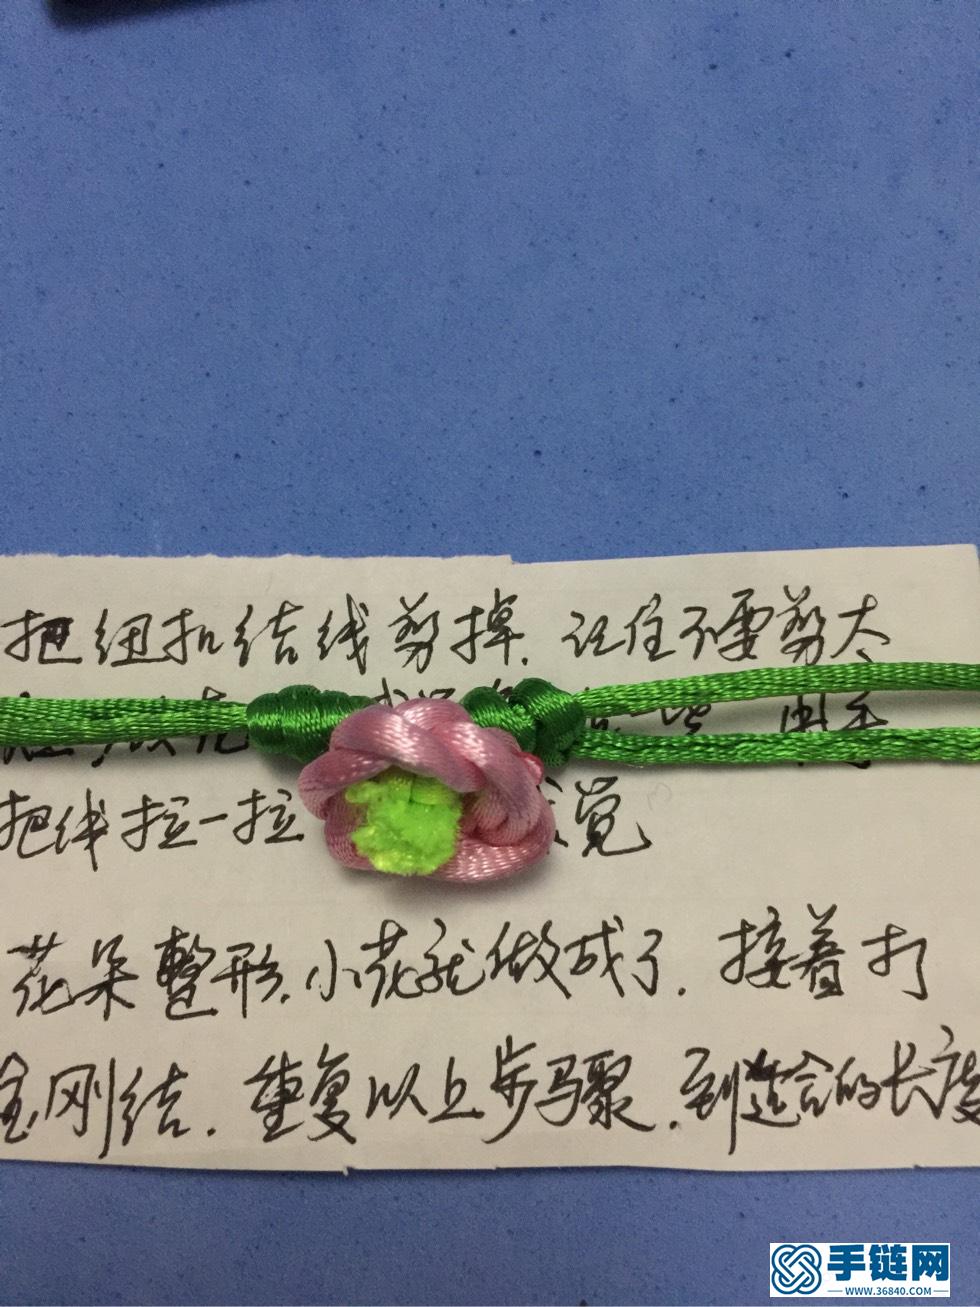 把纽扣结线剪掉.记住不要剪太
把线拉一拉 觉
花朵整形.小花就做成了.接着打
金刚结.重复以上步骤.到适合的长度
手链网
WWW.36840.COM